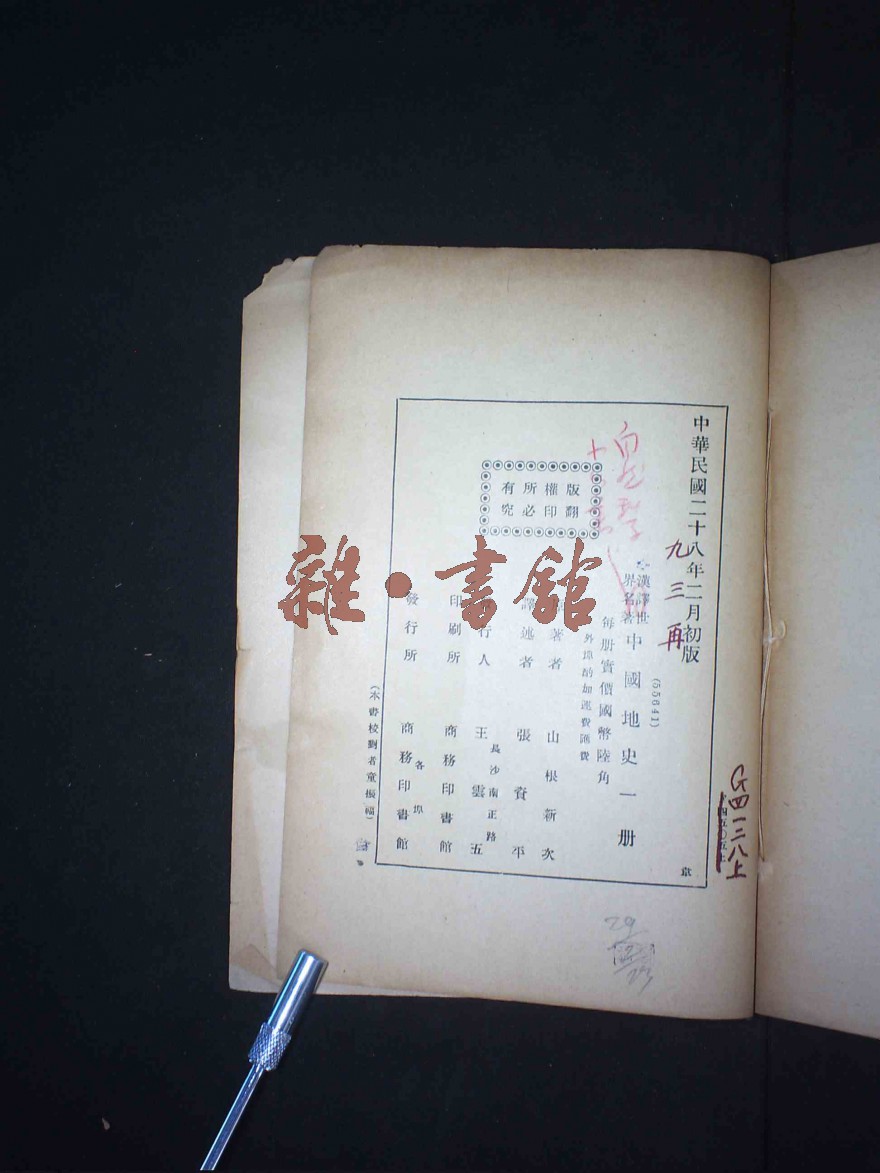 中華民國二十八年二月初版
九三再
(55641)
漢譯世
界名著
中國地史一册
每册實價國幣陸角
外埠酌加運費滙費
版權所有
翻印必究
著者 山根新次
譯述者 張資平
行人 王雲五
長沙南正路
印刷所 商務印書館
發行所 商務印書館
各埠
(本書校對者童振福)
G四一三八上
京
29
雜·書館